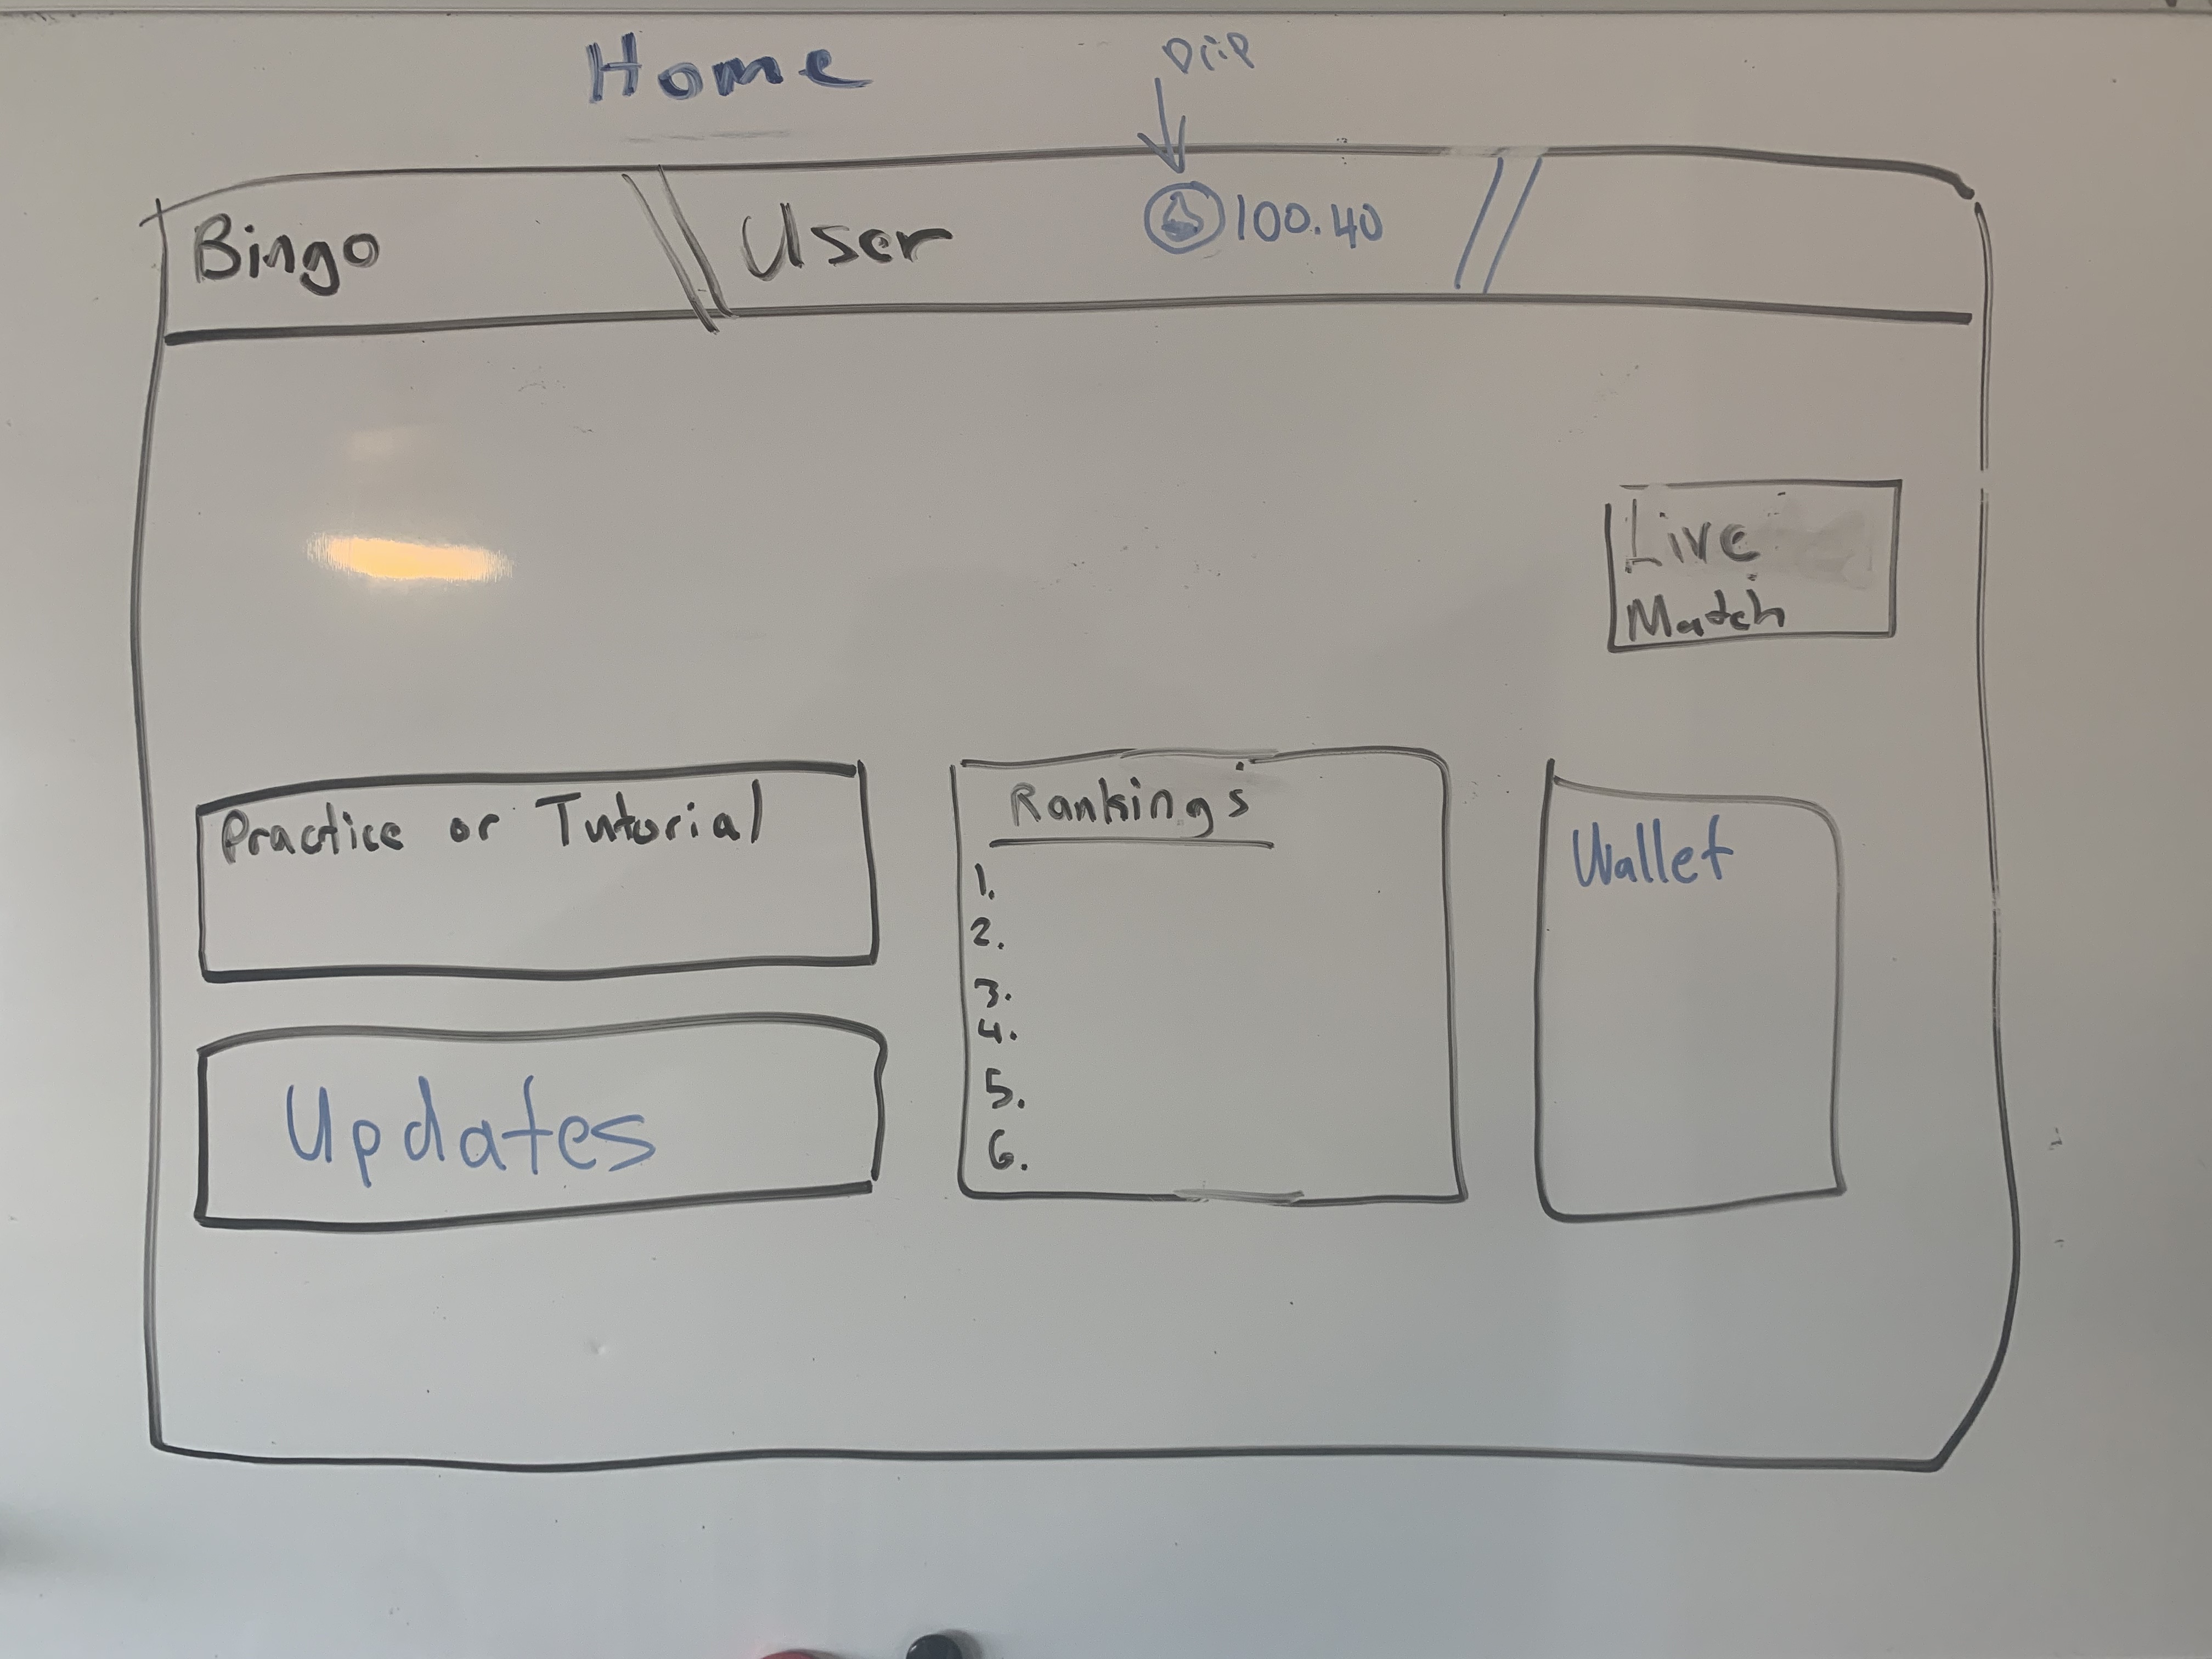 Home
Drip
Bingo
User
100.40
Live
Match
Practice or Tutorial
Updates
Rankings
1.
2.
3.
4.
5.
6.
Wallet